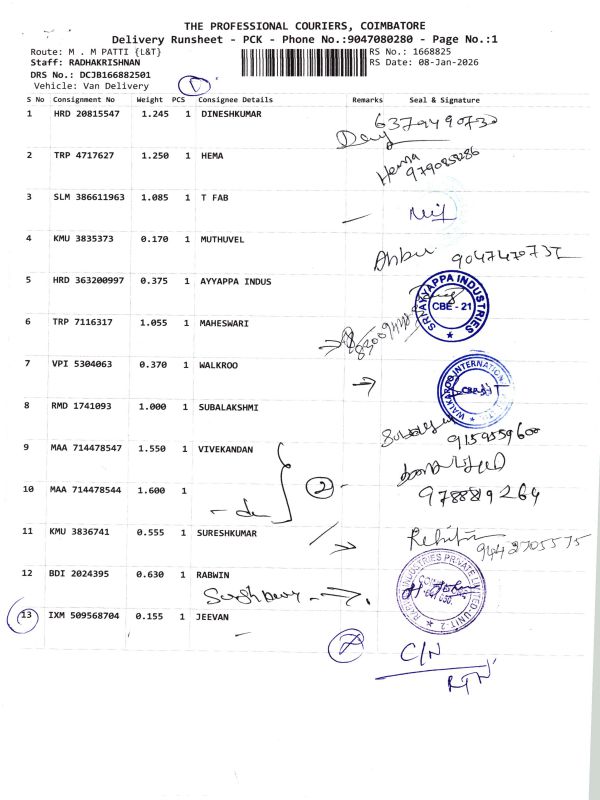 THE PROFESSIONAL COURIERS, COIMBATORE
Delivery Runsheet - PCK - Phone No.:9047080280 - Page No.:1
Route: M . M PATTI {L&T}
RS No.: 1668825
Staff: RADHAKRISHNAN
RS Date: 08-Jan-2026
DRS No.: DCJB166882501
Vehicle: Van Delivery
S No Consignment No Weight PCS Consignee Details Remarks Seal & Signature
1 HRD 20815547 1.245 1 DINESHKUMAR
2 TRP 4717627 1.250 1 HEMA
Hema
979085286
3 SLM 386611963 1.085 1 T FAB
4 KMU 3835373 0.170 1 MUTHUVEL
5 HRD 363200997 0.375 1 AYYAPPA INDUS
SRI AYYAPPA INDUSTRIES
CBE - 21
6 TRP 7116317 1.055 1 MAHESWARI
7 VPI 5304063 0.370 1 WALKROO
WALKAROO INTERNATIONAL
8 RMD 1741093 1.000 1 SUBALAKSHMI
9159559600
9 MAA 714478547 1.550 1 VIVEKANDAN
10 MAA 714478544 1.600 1
2
978889264
11 KMU 3836741 0.555 1 SURESHKUMAR
9442705575
12 BDI 2024395 0.630 1 RABWIN
INDUSTRIES PRIVATE LIMITED UNIT-2
13 IXM 509568704 0.155 1 JEEVAN
C/N
RTN